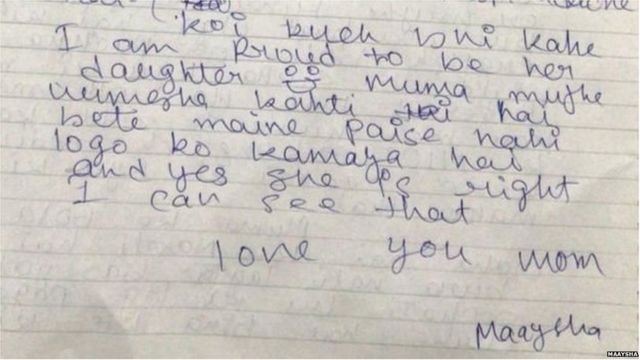 koi kuch bhi kahe
I am Proud to be her
daughter muma mujhe
humesha kahti hai
bete maine paise nahi
logo ko kamaya hai
and yes she is right
I can see that
love you mom
Maaysha
MAAYSHA